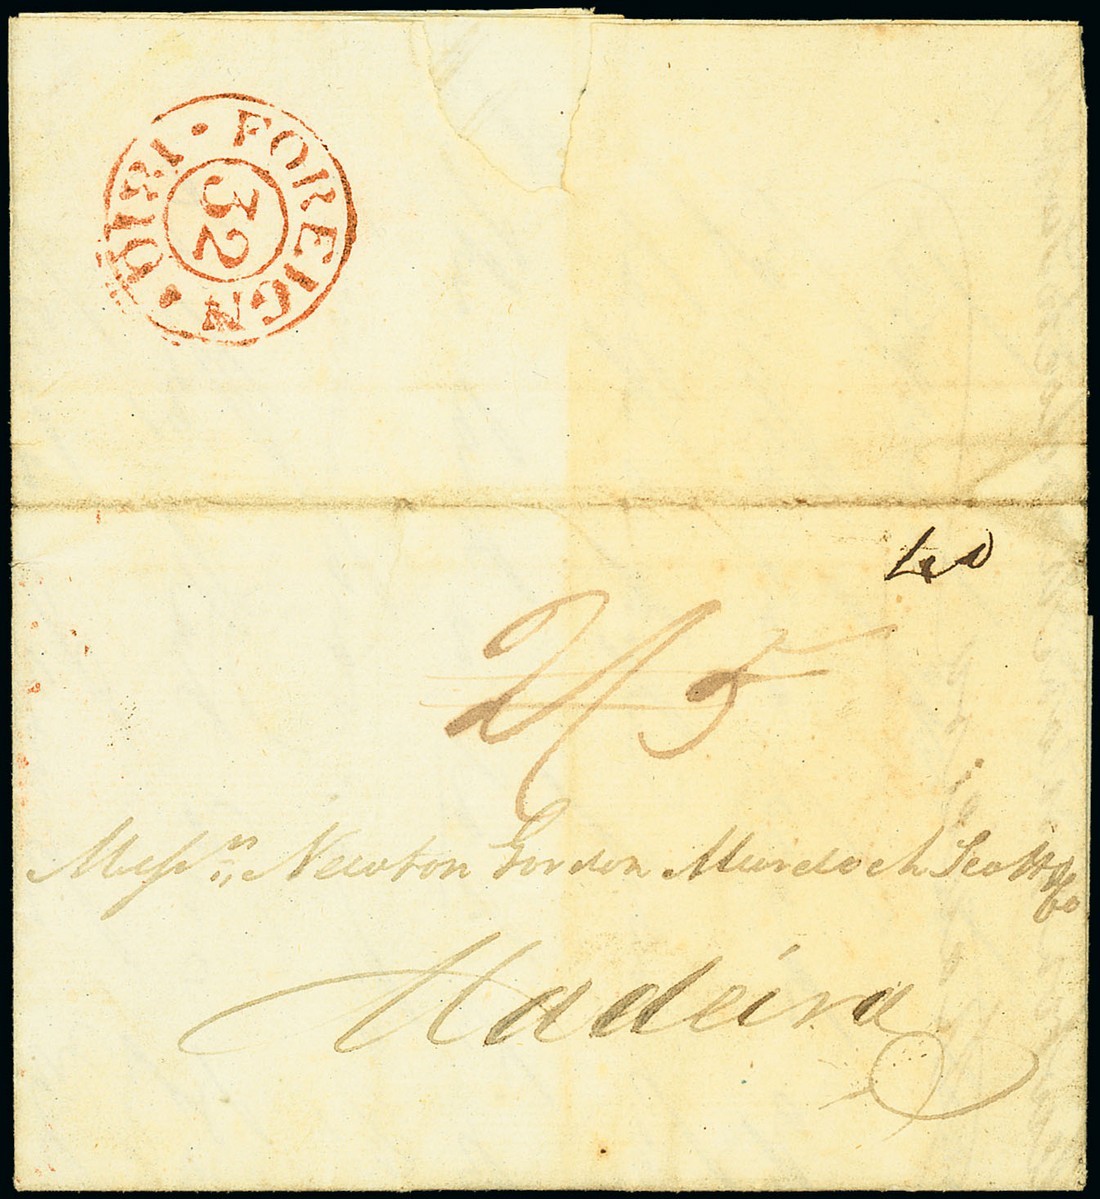 FOREIGN · 1810 ·
32
40
2/5
Messrs Newton Gordon Murdoch Scott & Co
Madeira